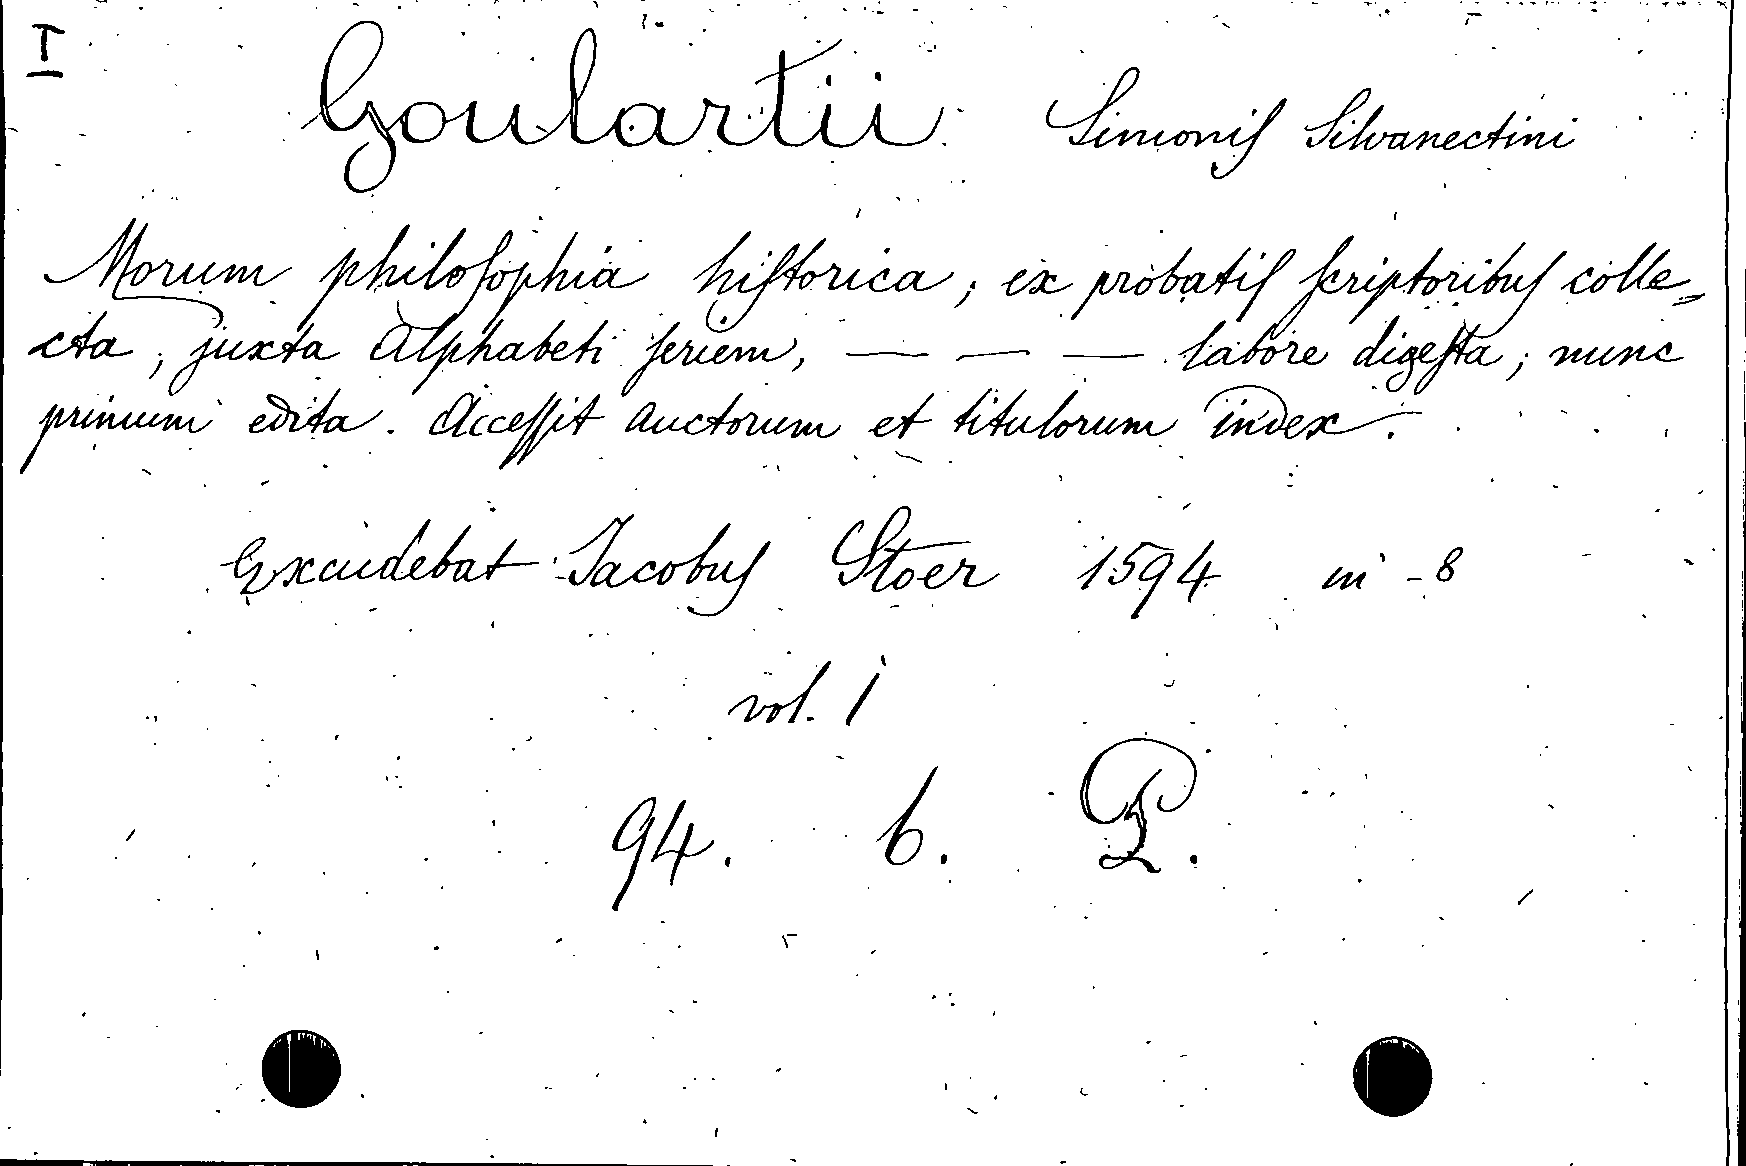 I
Goulartii Simonis Silvanectini
Morum philosophia historica; ex probatis scriptoribus colle-
cta, juxta alphabeti seriem, — — — labore digesta; nunc
primum edita. Accessit auctorum et titulorum index.
Excudebat Jacobus Stoer 1594 in-8
vol. 1
94. 6. P.